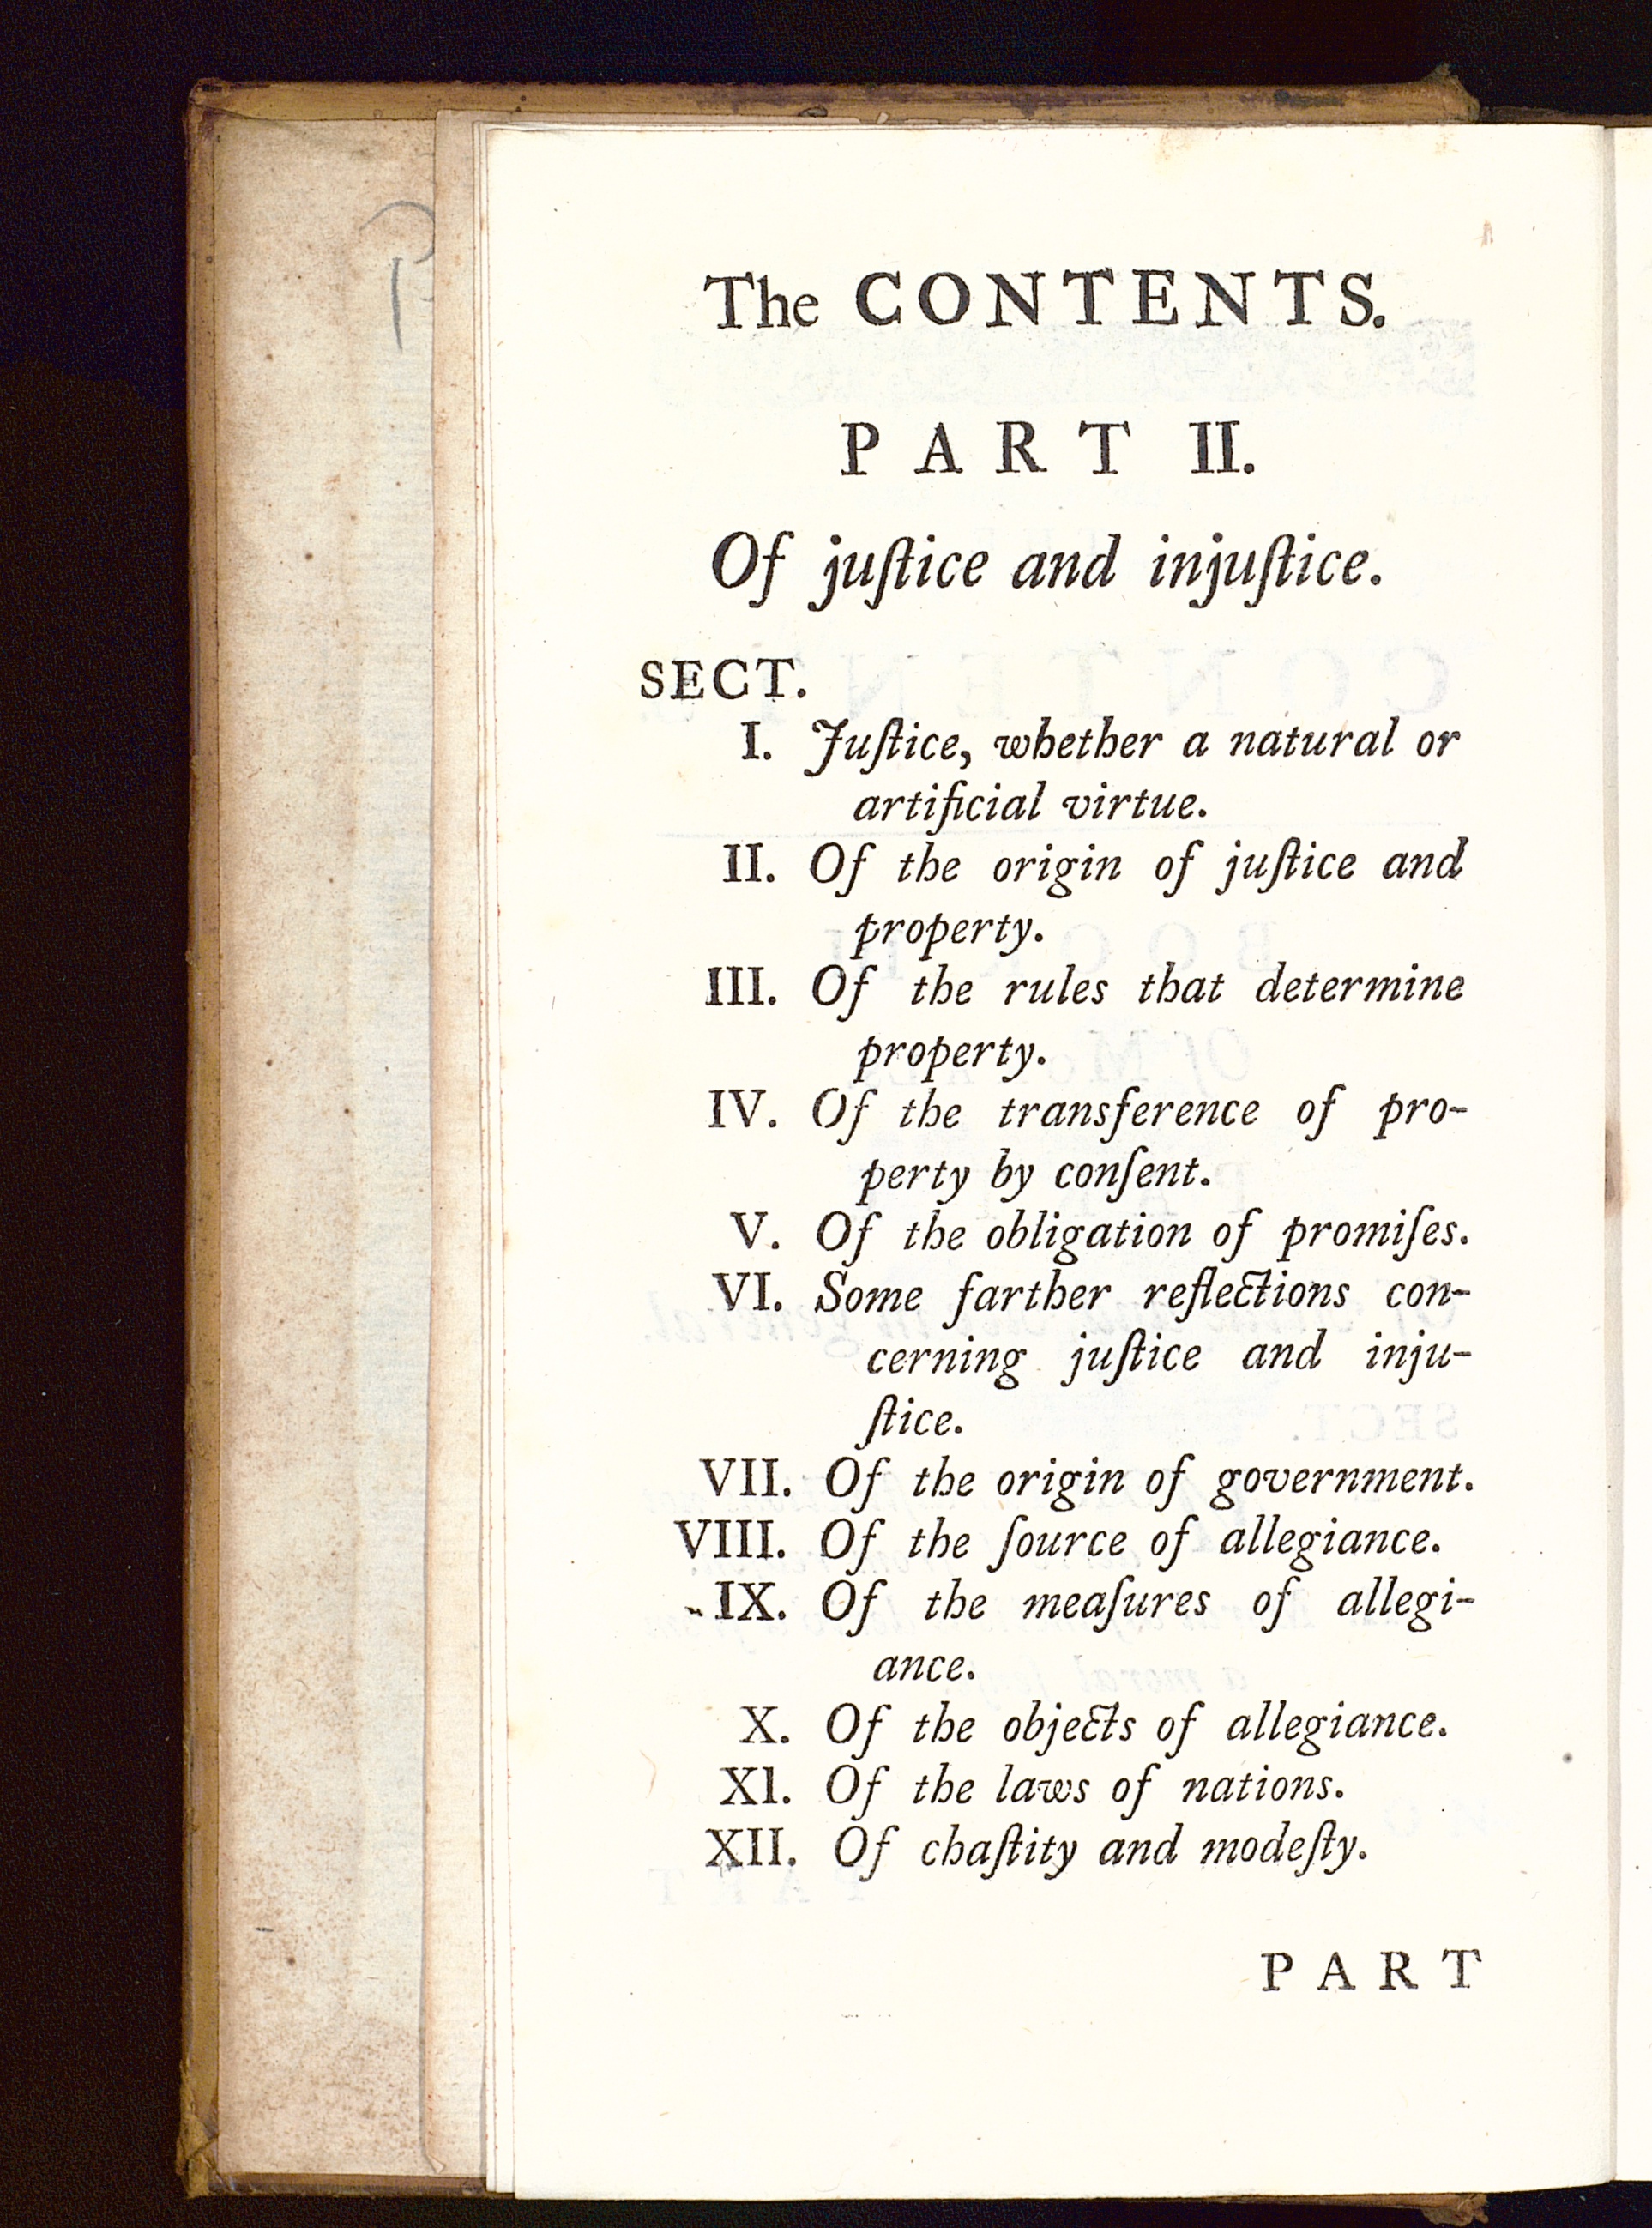 The CONTENTS.
PART II.
Of juſtice and injuſtice.
SECT.
I. Juſtice, whether a natural or
artificial virtue.
II. Of the origin of juſtice and
property.
III. Of the rules that determine
property.
IV. Of the transference of pro-
perty by conſent.
V. Of the obligation of promiſes.
VI. Some farther reflections con-
cerning juſtice and inju-
ſtice.
VII. Of the origin of government.
VIII. Of the ſource of allegiance.
IX. Of the meaſures of allegi-
ance.
X. Of the objects of allegiance.
XI. Of the laws of nations.
XII. Of chaſtity and modeſty.
PART